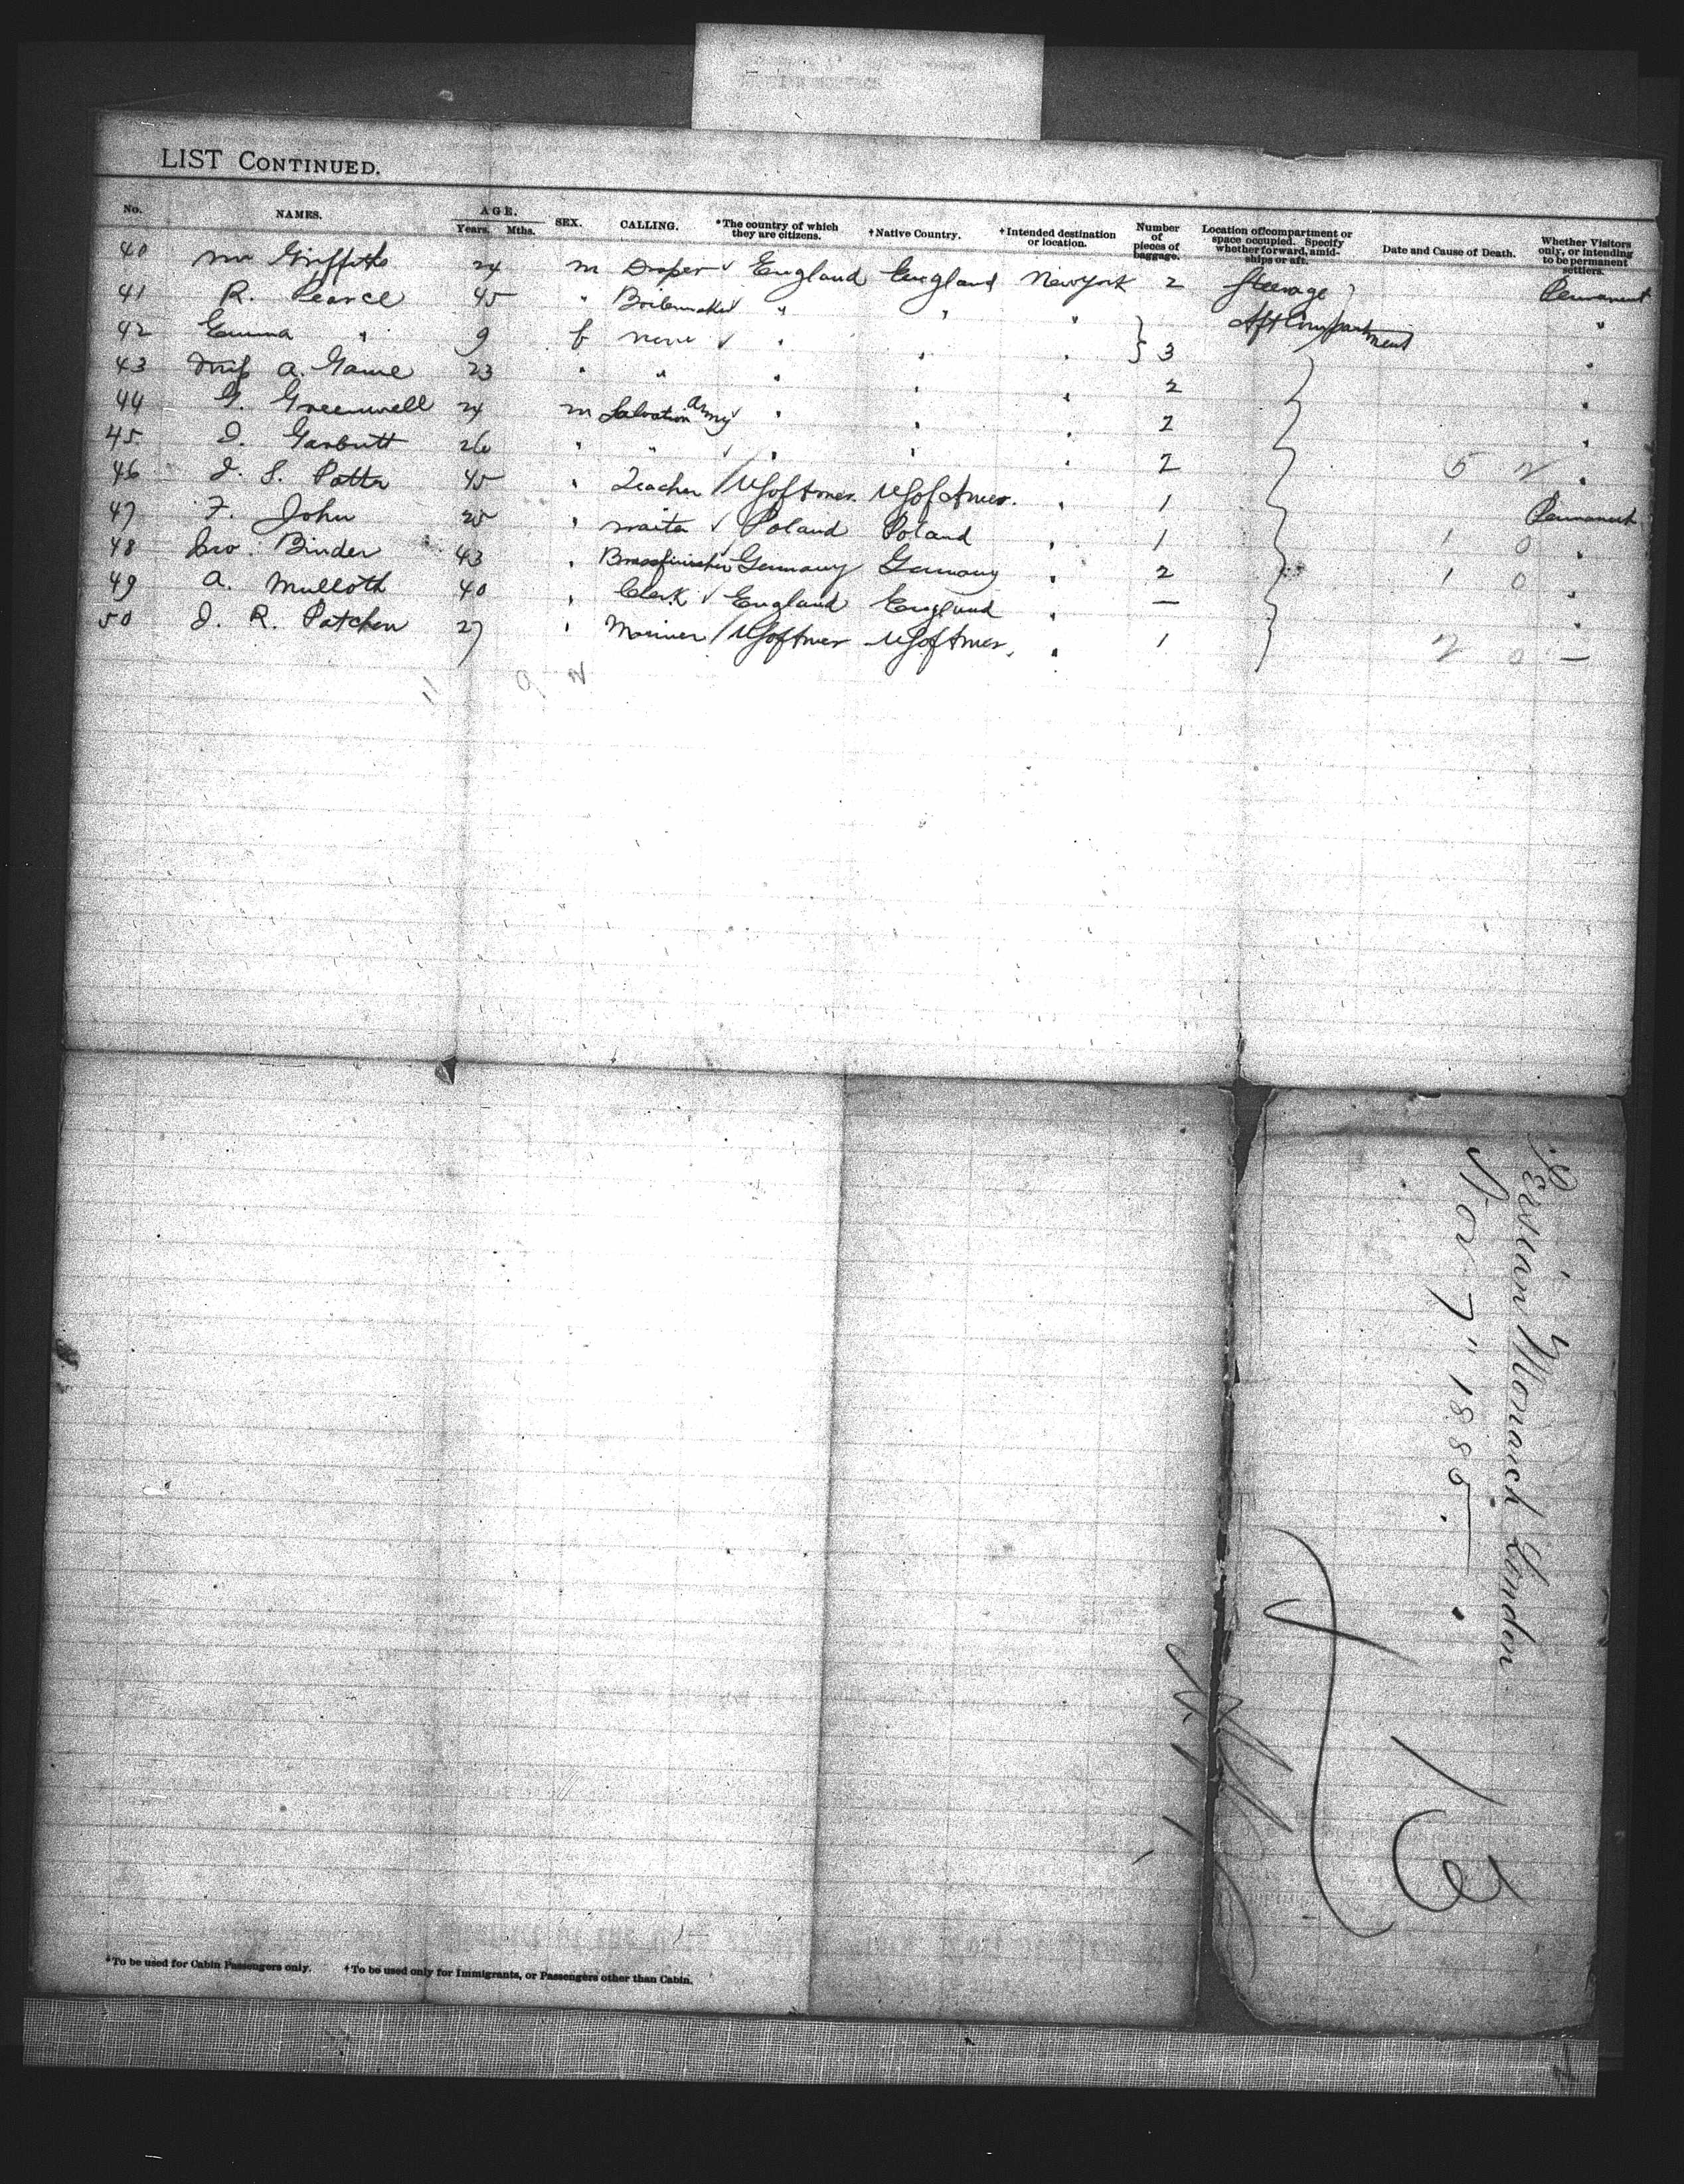 LIST CONTINUED.
No. NAMES. AGE. Years. Mths. SEX. CALLING. *The country of which they are citizens. †Native Country. †Intended destination or location. Number of pieces of baggage. Location of compartment or space occupied. Specify whether forward, amidships or aft. Date and Cause of Death. Whether Visitors only, or intending to be permanent settlers.
40 Griffiths 24 m Draper ✓ England England New York 2 Steerage Permanent
41 R. Pearce 45 " Boilermaker ✓ " " " Aft Compartment "
42 Emma " 9 f none ✓ " " " } 3 "
43 Miss A. Game 23 " " " " " 2 "
44 G. Greenwell 24 m Salvation Army ✓ " " " 2 "
45 J. Garbutt 26 " " ✓ " " " 2 5 2 "
46 J. S. Potter 45 " Teacher / US of Amer. US of Amer. " 1 Permanent
47 F. John 25 " Waiter ✓ Poland Poland " 1 1 0 "
48 Binder 43 " Brassfinisher ✓ Germany Germany " 2 1 0 "
49 A. Mulloth 40 " Clerk ✓ England England " — "
50 J. R. Patchen 27 " Mariner / US of Amer US of Amer. " 1 2 0 —
11 9 2
Persian Monarch London
Nov 7" 1885
13
*To be used for Cabin Passengers only. †To be used only for Immigrants, or Passengers other than Cabin.